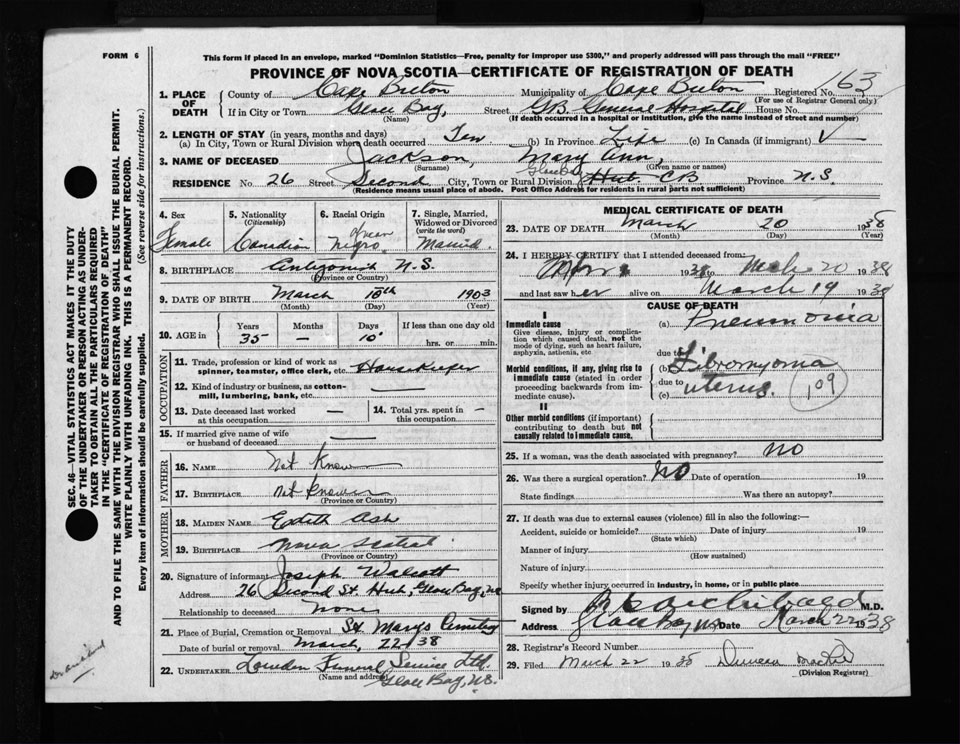 FORM 6
This form if placed in an envelope, marked "Dominion Statistics—Free, penalty for improper use $300," and properly addressed will pass through the mail "FREE"
PROVINCE OF NOVA SCOTIA—CERTIFICATE OF REGISTRATION OF DEATH
163
1. PLACE OF DEATH
County of Cape Breton Municipality of Cape Breton Registered No.
(For use of Registrar General only)
If in City or Town Glace Bay, Street G.B. General Hospital House No.
(Name) (If death occurred in a hospital or institution, give the name instead of street and number)
2. LENGTH OF STAY (in years, months and days)
(a) In City, Town or Rural Division where death occurred Ten (b) In Province Life (c) In Canada (if immigrant) ✓
3. NAME OF DECEASED Jackson, Mary Ann,
(Surname) (Given name or names)
RESIDENCE No. 26 Street Second City, Town or Rural Division Glace Bay Hub. CB Province N.S.
(Residence means usual place of abode. Post Office Address for residents in rural parts not sufficient)
4. Sex
Female
5. Nationality
(Citizenship)
Canadian
6. Racial Origin
Negro
7. Single, Married, Widowed or Divorced
(write the word)
Married
8. BIRTHPLACE Antigonish N.S.
(Province or Country)
9. DATE OF BIRTH March 10th 1903
(Month) (Day) (Year)
10. AGE in
Years Months Days If less than one day
35 — 10 hrs. or min.
OCCUPATION
11. Trade, profession or kind of work as spinner, teamster, office clerk, etc. Housekeeper
12. Kind of industry or business, as cotton-mill, lumbering, bank, etc. —
13. Date deceased last worked at this occupation —
14. Total yrs. spent in this occupation —
15. If married give name of wife or husband of deceased —
FATHER
16. NAME Not Known
17. BIRTHPLACE Not Known
(Province or Country)
MOTHER
18. MAIDEN NAME Edith Ash
19. BIRTHPLACE Nova Scotia
(Province or Country)
20. Signature of informant Joseph Walcott
Address 26 Second St. Hub, Glace Bay, NS
Relationship to deceased None
21. Place of Burial, Cremation or Removal St Marys Cemetery
Date of burial or removal March, 22/38
22. UNDERTAKER Lowden Funeral Service Ltd.
(Name and address)
Glace Bay, N.S.
MEDICAL CERTIFICATE OF DEATH
23. DATE OF DEATH March 20 1938
(Month) (Day) (Year)
24. I HEREBY CERTIFY that I attended deceased from:
1938 to Mch 20 1938
and last saw her alive on March 19 1938
CAUSE OF DEATH
I
Immediate cause
Give disease, injury or complication which caused death, not the mode of dying, such as heart failure, asphyxia, asthenia, etc
(a) Pneumonia
due to
Morbid conditions, if any, giving rise to immediate cause (stated in order proceeding backwards from immediate cause).
(b) Fibromyoma
due to
(c) uterus. 109
II
Other morbid conditions (if important) contributing to death but not causally related to immediate cause.
25. If a woman, was the death associated with pregnancy? NO
26. Was there a surgical operation? NO Date of operation 19
State findings Was there an autopsy?
27. If death was due to external causes (violence) fill in also the following:—
Accident, suicide or homicide? Date of injury 19
(State which)
Manner of injury
(How sustained)
Nature of injury
Specify whether injury occurred in industry, in home, or in public place
Signed by Archibald M.D.
Address Glace Bay NS Date March 22 1938
28. Registrar's Record Number
29. Filed March 22 1938 Duncan
(Division Registrar)
SEC. 46—VITAL STATISTICS ACT MAKES IT THE DUTY
OF THE UNDERTAKER OR PERSON ACTING AS UNDER-
TAKER TO OBTAIN ALL THE PARTICULARS REQUIRED
IN THE "CERTIFICATE OF REGISTRATION OF DEATH"
AND TO FILE THE SAME WITH THE DIVISION REGISTRAR WHO SHALL ISSUE THE BURIAL PERMIT.
WRITE PLAINLY WITH UNFADING INK. THIS IS A PERMANENT RECORD.
Every item of information should be carefully supplied. (See reverse side for instructions.)